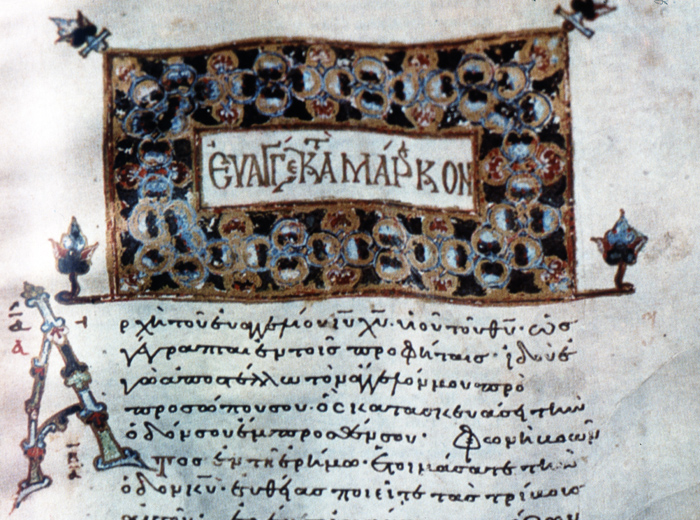 ΕΥΑΓΓΕ ΚΑΤΑ ΜΑΡΚΟΝ
Αρχὴ τοῦ εὐαγγελίου ἰῡ χῡ· υἱοῦ τοῦ θῡ· ὡς
γέγραπται ἐν τοῖς προφήταις· ἰδοὺ ἐ
γὼ ἀποστέλλω τὸν ἄγγελόν μου πρὸ
προσώπου σου· ὃς κατασκευάσει τὴν
ὁδόν σου ἔμπροσθέν σου· Φωνὴ βοῶν
τος ἐν τῇ ἐρήμω· ἑτοιμάσατε τὴν
ὁδὸν κῡ· εὐθείας ποιεῖτε τὰς τρίβους
αὐτοῦ·